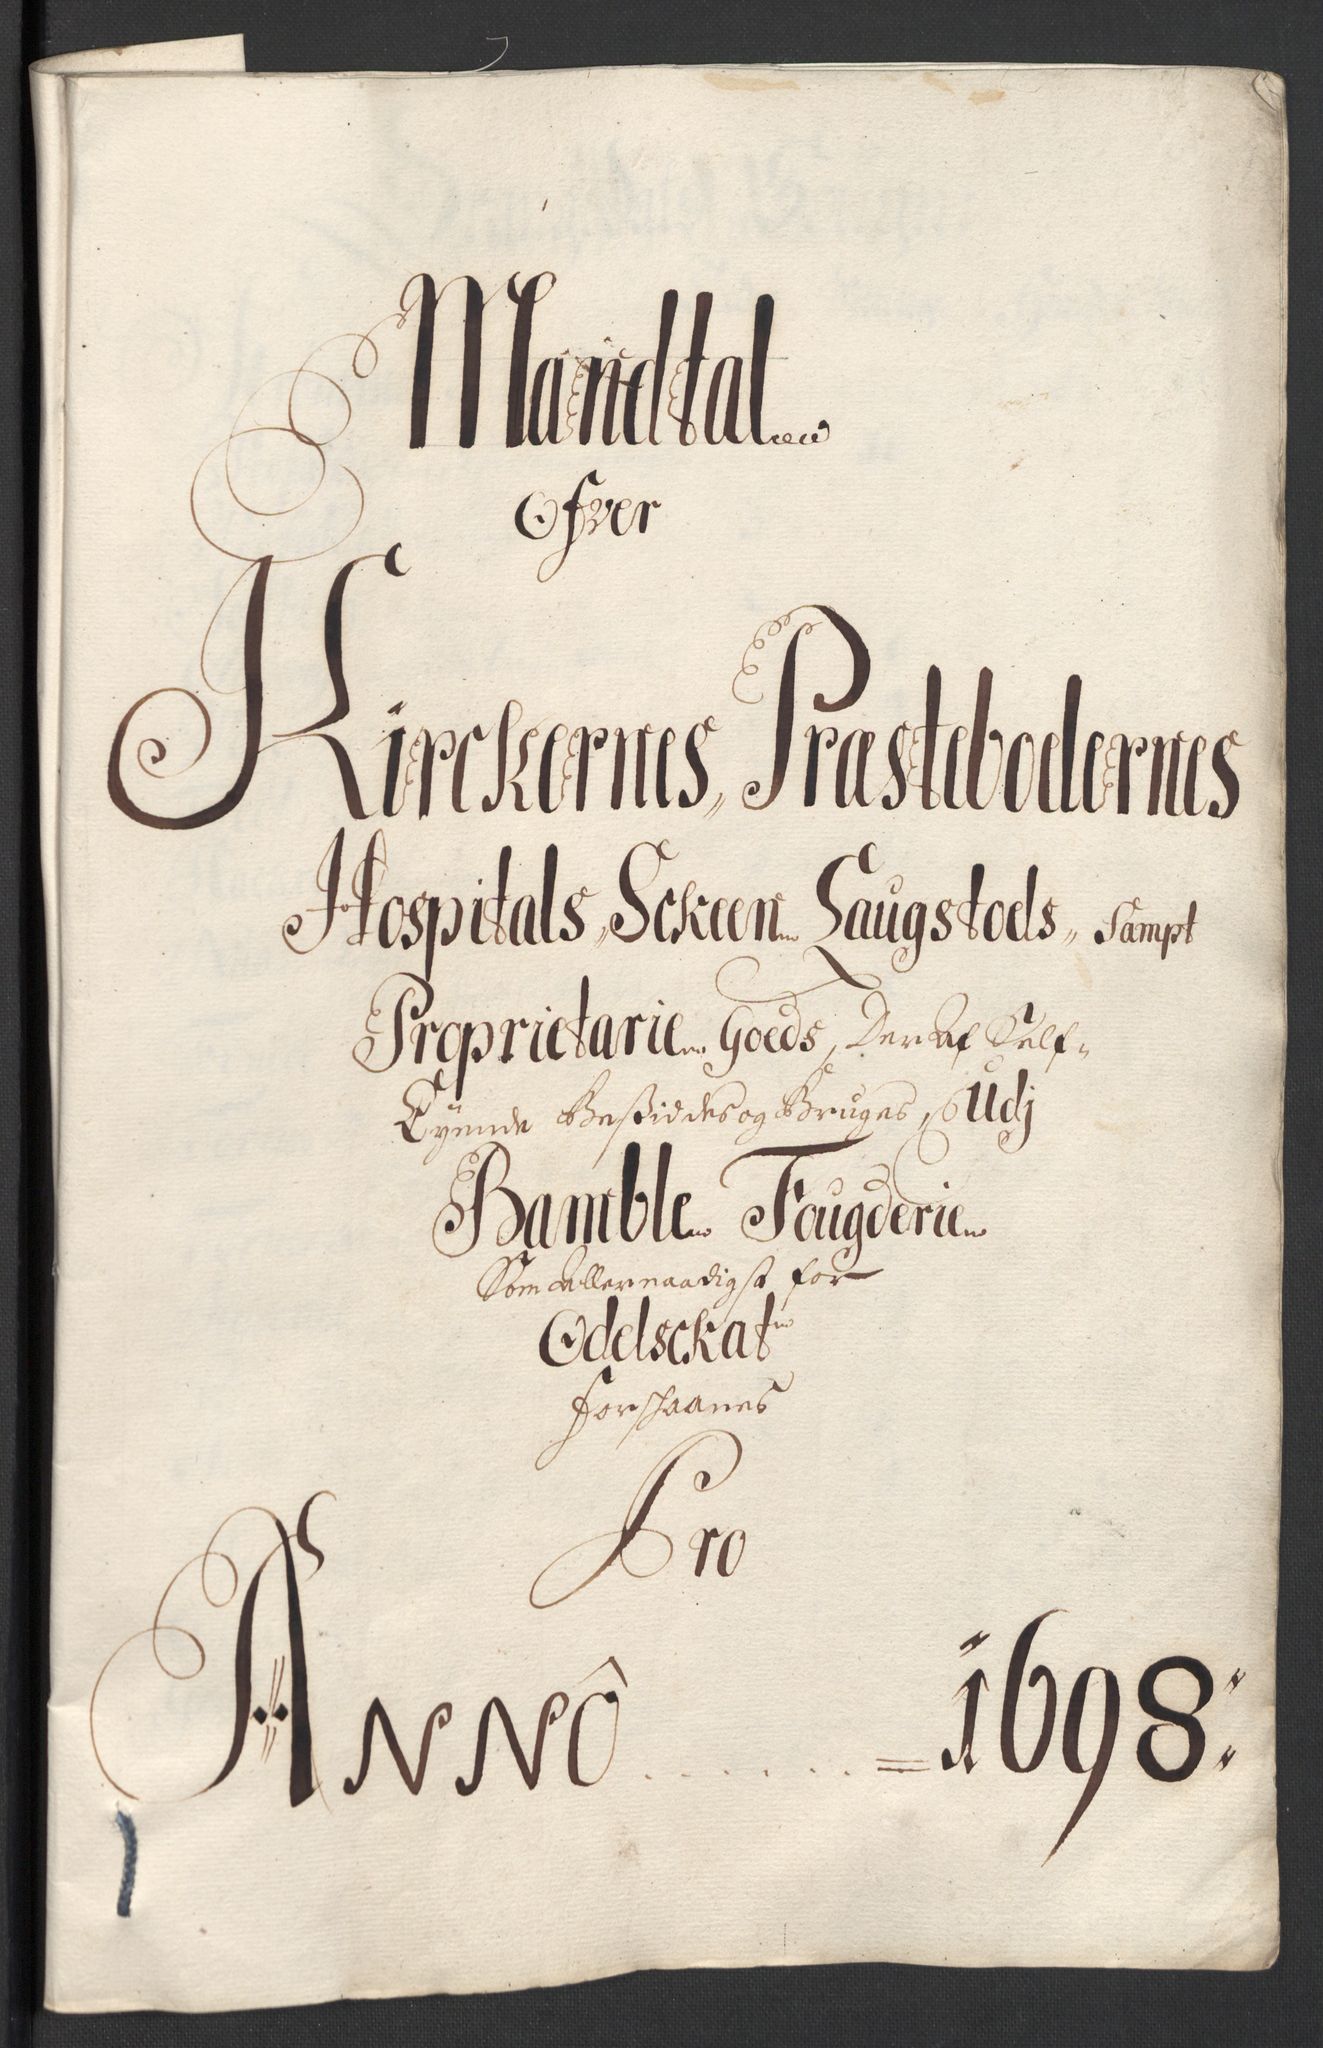 Mandtal
Ofver
Kirckernes, Præstebodernes
Hospitals, Sckeen Laugstoels, Sampt
Proprietarie Goeds, Der Af Self-
Eyende Besiddes og Bruges, Udj
Bamble Fougderie
Som Allernaadigst for
Odelsckat
forschaanes
Pro
Anno ...... = 1698